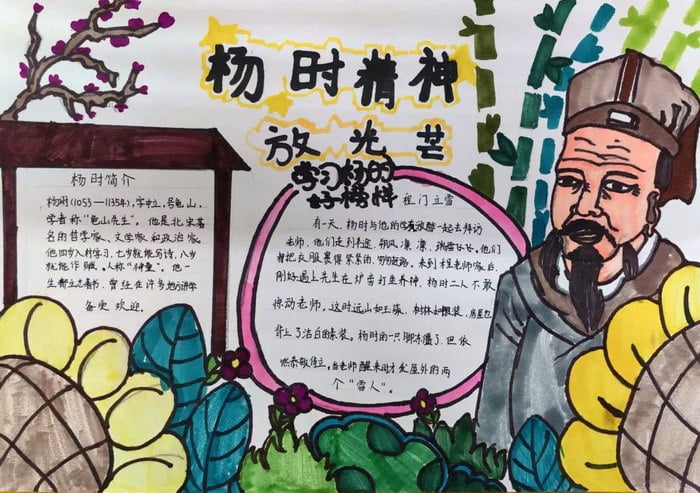 杨时精神
放光芒
学习杨时的
好榜样
程门立雪
杨时简介
杨时(1053—1135年),字中立,号龟山,
学者称“龟山先生”。他是北宋著
名的哲学家、文学家和政治家。
他四岁入村学习,七岁就能写诗,八岁
就能作赋,人称“神童”。他一
生都立志著书,曾经在许多地方讲学
备受欢迎。
有一天,杨时与他的学友游酢一起去拜访
老师,他们走到半途,朔风凛凛,瑞雪飞,他们
把衣服裹得紧紧的,匆匆赶路,来到程老师家后,
刚好遇上先生在炉旁打坐养神,杨时二人不敢
惊动老师,这时远山如玉簇、树林如银装,房屋也
披上了洁白的素装。杨时的一只脚冻僵了,但依
然恭敬侍立,当老师醒来时才发屋外的两
个“雪人”。